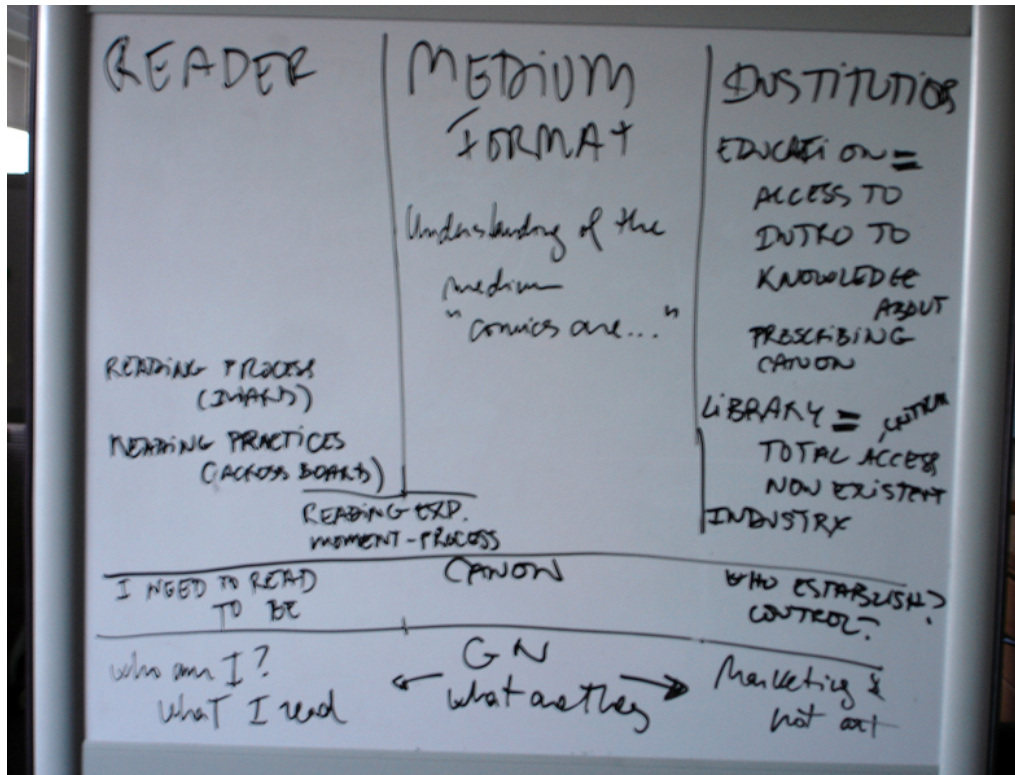 READER
READING PROCESS
READING PRACTICES
(ACROSS BOARD)
READING EXP.
MOMENT-PROCESS
MEDIUM
FORMAT
Understanding of the
medium
"comics are..."
INSTITUTION
EDUCATION =
ACCESS TO
INTRO TO
KNOWLEDGE
ABOUT
PRESCRIBING
CANON
LIBRARY =
TOTAL ACCESS
NON EXISTENT
INDUSTRY
I NEED TO READ
TO BE
CANON
WHO ESTABLISH?
CONTROL?
who am I?
what I read
GN
what are they
Marketing &
not art